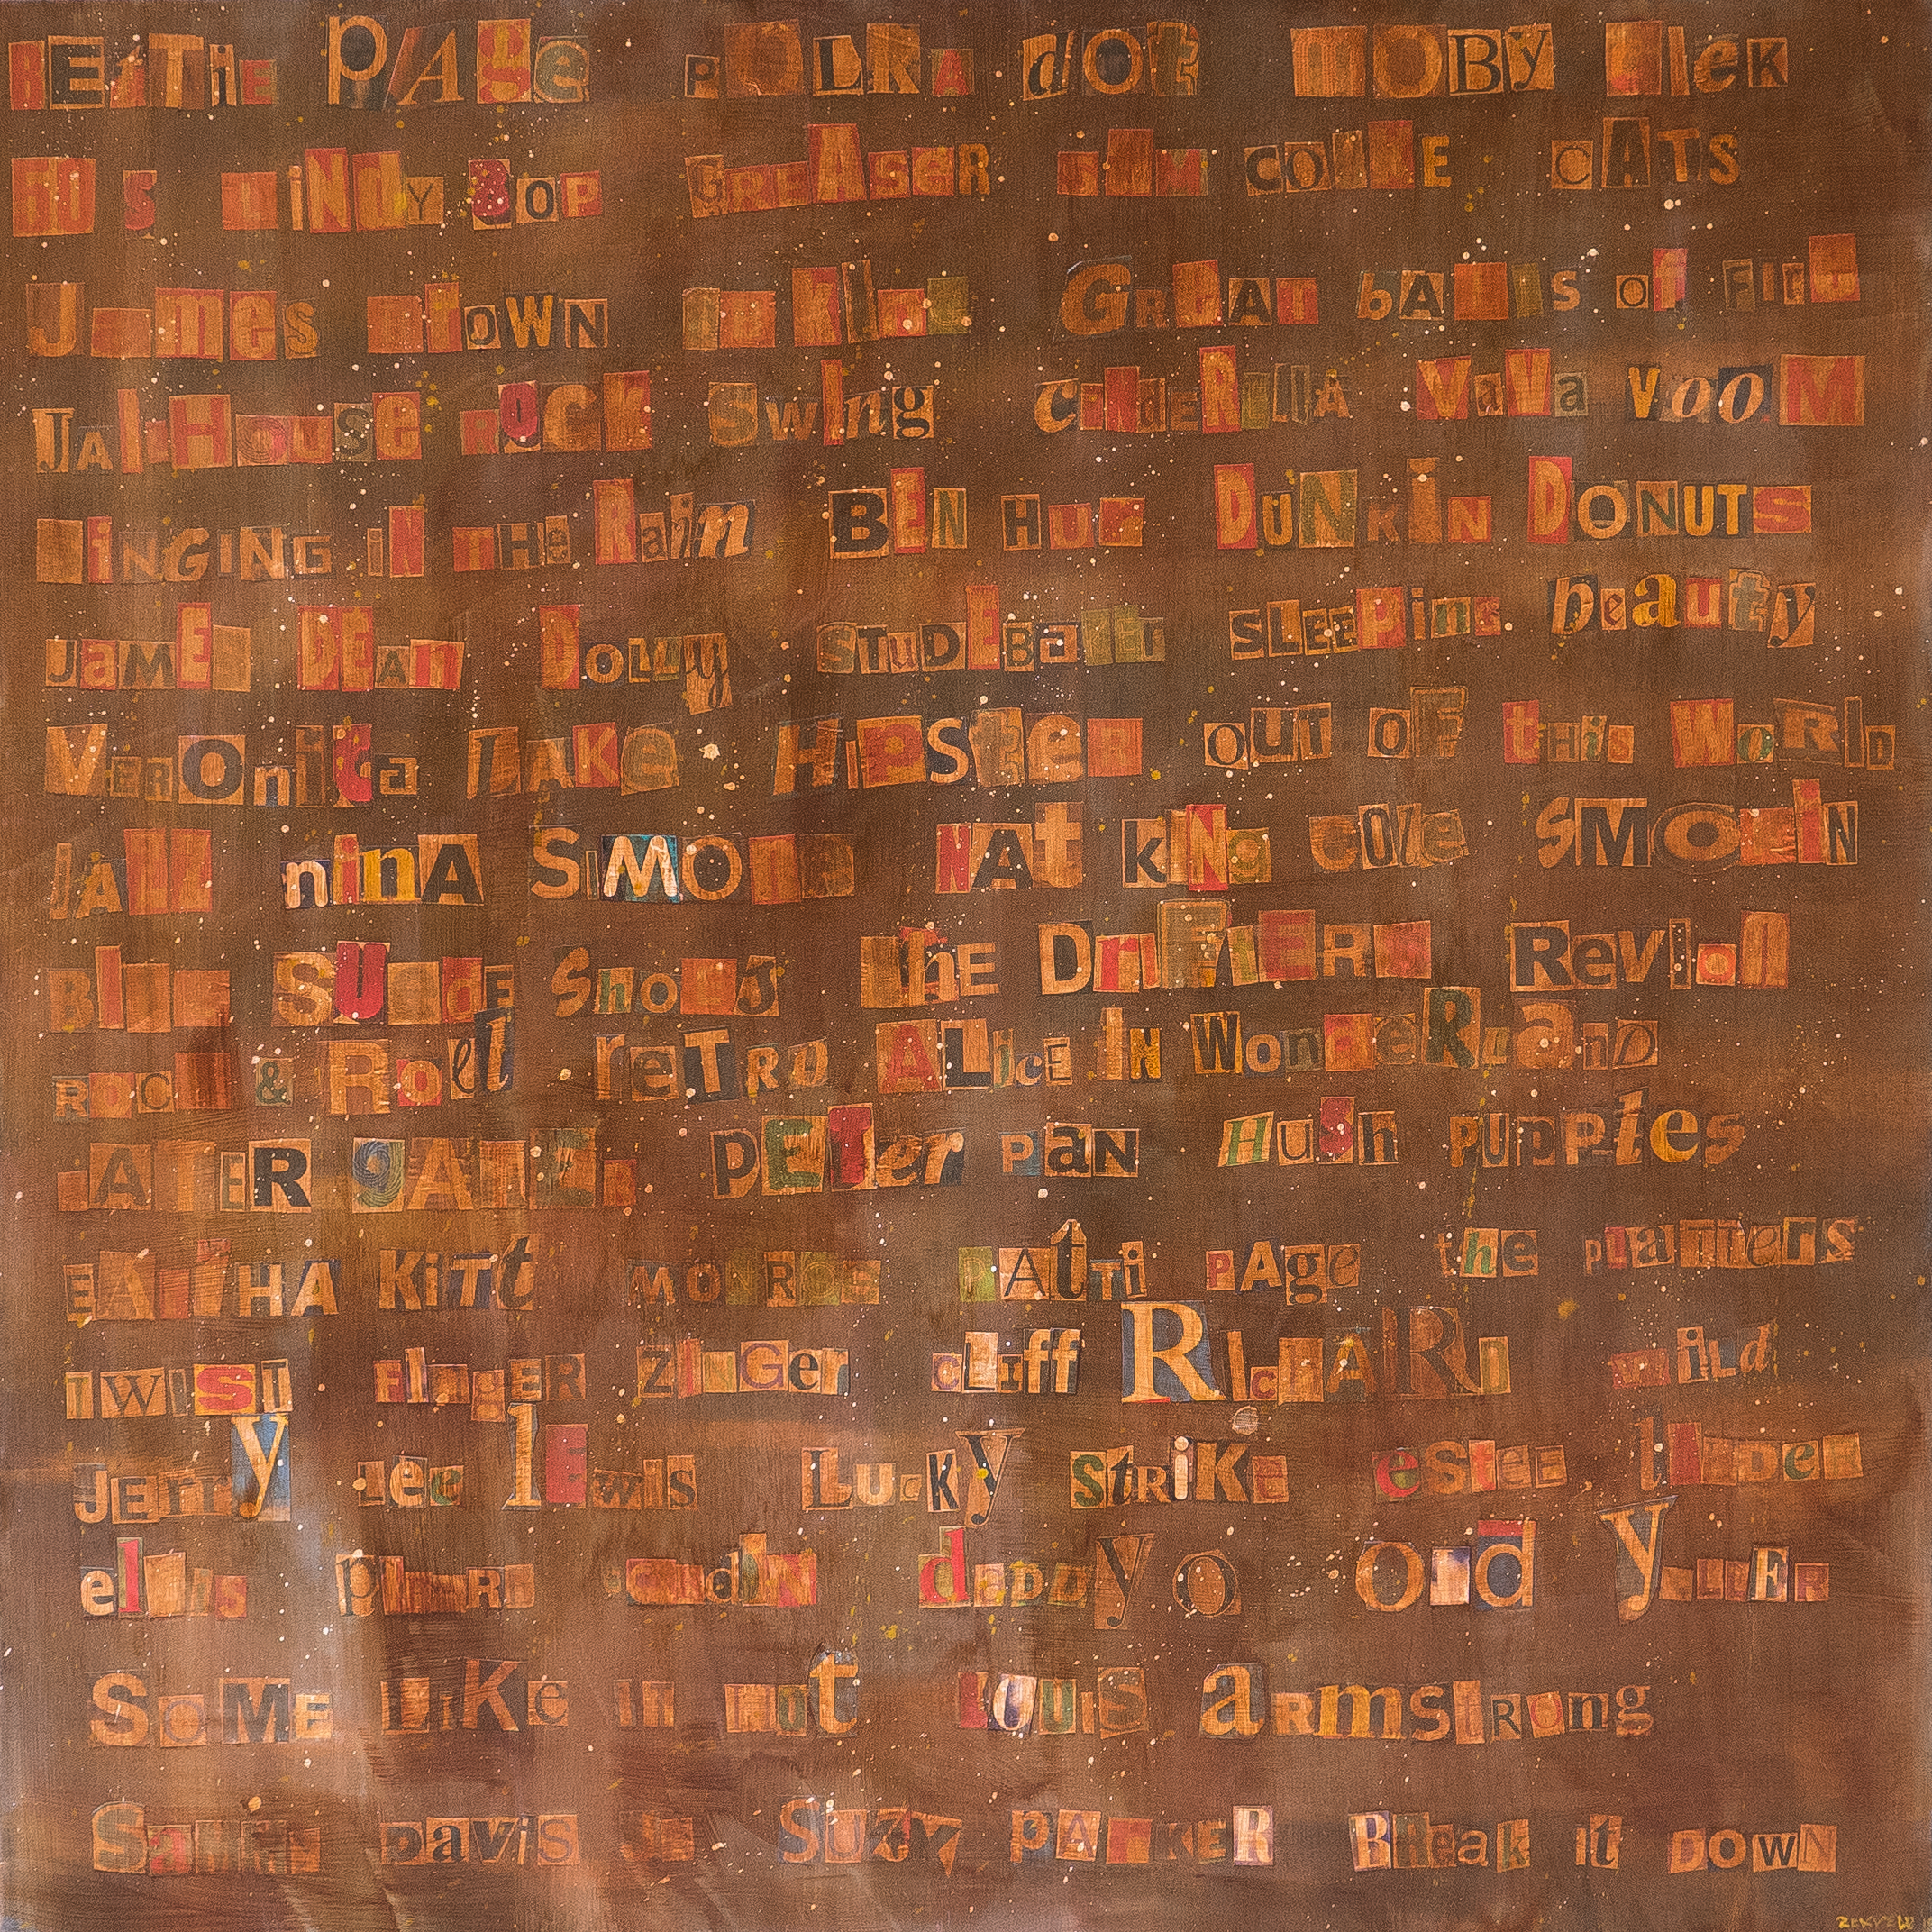 BETTIE PAGE POLKA dOt MOBY DIcK
LiNdy BOP GREASeR SAM COOKE CATS
James BROWN kIng GReAt bAlls of FIre
JAilHouse ROCK Swing cinDeRellA VaVa VooM
SINGING iN THe Rain BEN HUr DUNKIN DONUTS
JaMES DEAn DOLLy STuDEBaker SLEEPing beauty
VEROnica LAKe HiPSteR OUT OF tHis WoRlD
JAzz ninA SiMOne NAt kiNg cole SMOkIN
Blue SUedE Shoes thE DriFtERS Revlon
ROCk & Roll reTRO ALicE IN WonDeRLanD
LATER gATER PETer paN HuSh PUPPies
EARTHA KiTt MONROe PAtTi PAge the PLaTTerS
TWIST FIngER ZInGer cLIff RIchARD wiLd
JERRy Lee lEwiS LucKy StRiKe esTEE lAuDer
elvis daDDyo Old YeLLER
SoME LiKe iT HOt LOUIS aRmSTRong
SaMMy DaviS JR SUZY PARKER BReak it DOWN
ZEKVELD